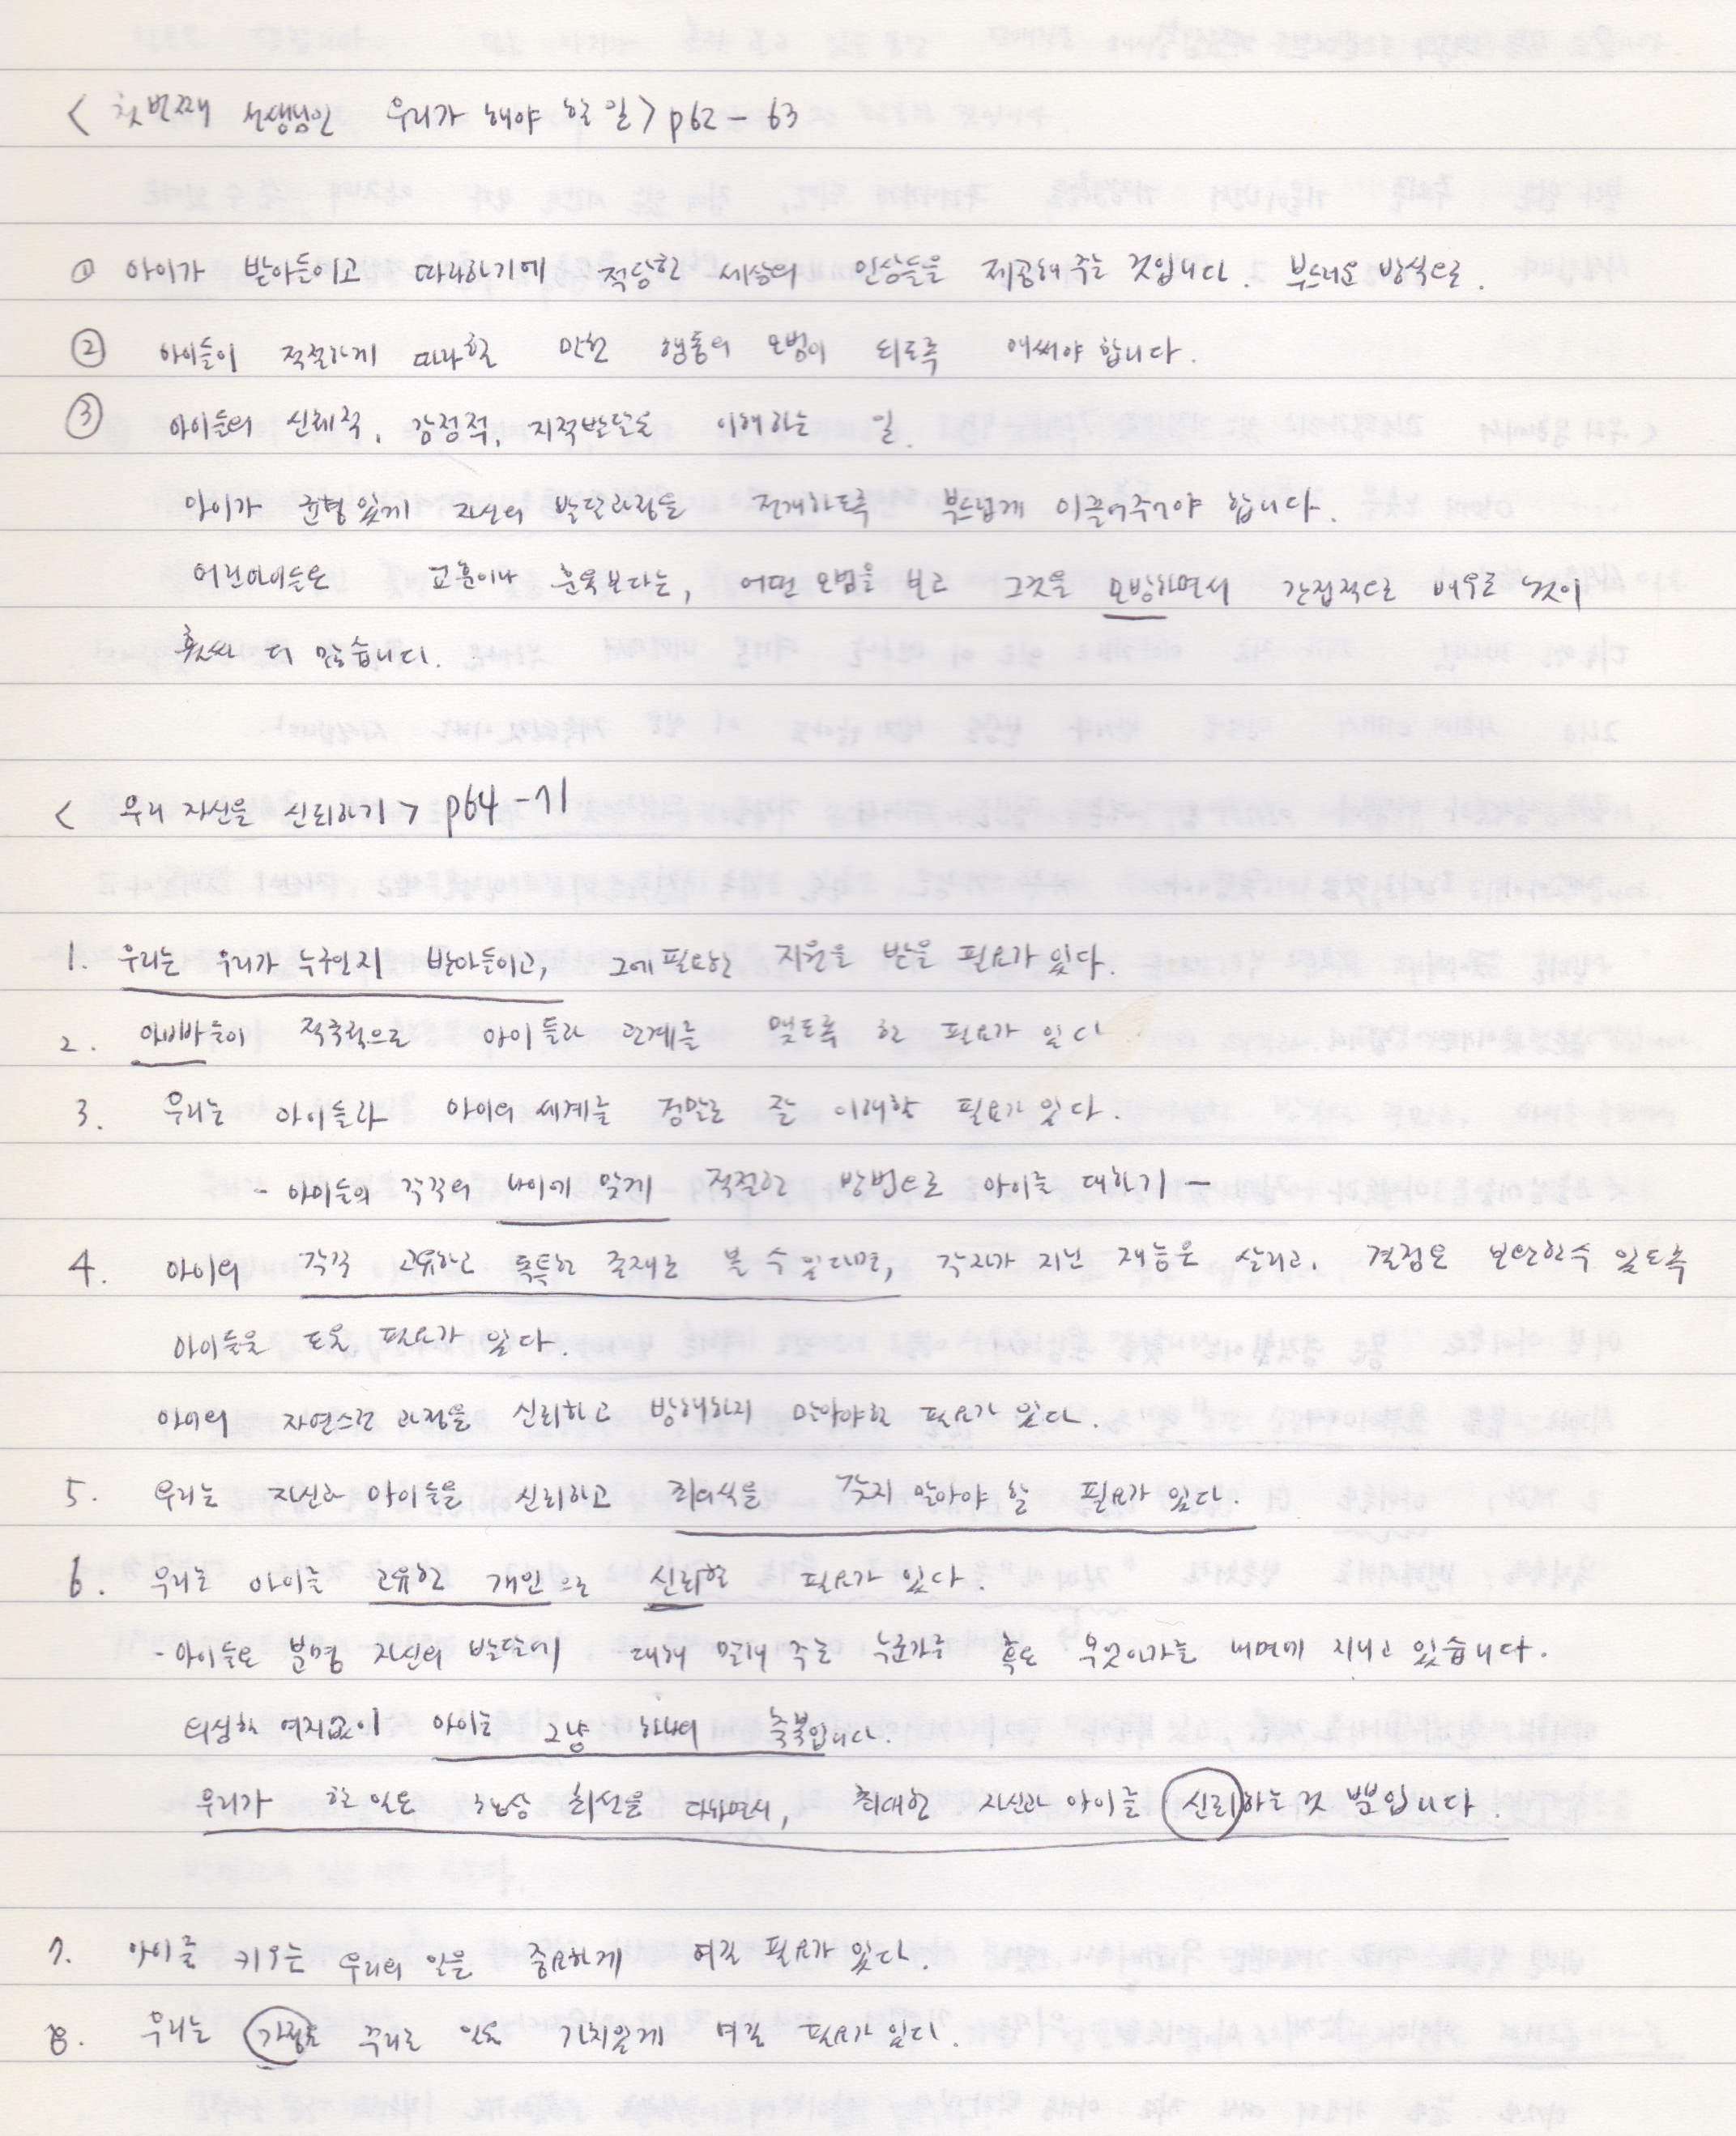 < 첫번째 선생님인 우리가 해야 할 일 > p62 - 63
① 아이가 받아들이고 따라하기에 적당한 세상의 인상들을 제공해 주는 것입니다. 부드러운 방식으로.
② 아이들이 적절하게 따라할 만한 행동의 모범이 되도록 애써야 합니다.
③ 아이들의 신체적, 감정적, 지적발달을 이해하는 일.
아이가 균형 있게 자신의 발달과정을 전개하도록 부드럽게 이끌어주어야 합니다.
어린아이들은 교훈이나 훈육보다는, 어떤 모범을 보고 그것을 모방하면서 간접적으로 배우는 것이
훨씬 더 많습니다.
< 우리 자신을 신뢰하기 > p64 - 71
1. 우리는 우리가 누구인지 받아들이고, 그에 필요한 지원을 받을 필요가 있다.
2. 아빠들이 적극적으로 아이들과 관계를 맺도록 할 필요가 있다
3. 우리는 아이들과 아이의 세계를 정말로 잘 이해할 필요가 있다.
- 아이들의 각각의 나이에 맞게 적절한 방법으로 아이를 대하기 -
4. 아이의 각각 고유하고 독특한 존재로 볼 수 있다면, 각자가 지닌 재능은 살리고, 결점은 보완할수 있도록
아이들을 도울 필요가 있다.
아이의 자연스런 과정을 신뢰하고 방해하지 말아야할 필요가 있다.
5. 우리는 자신과 아이들을 신뢰하고 죄의식을 갖지 말아야 할 필요가 있다.
6. 우리는 아이를 고유한 개인으로 신뢰할 필요가 있다.
- 아이들은 분명 자신의 발달에 대해 말해 주는 누군가를 혹은 무엇인가를 내면에 지니고 있습니다.
의심할 여지없이 아이는 그냥 하나의 축복입니다.
우리가 할 일은 항상 최선을 다하면서, 최대한 자신과 아이를 신뢰하는 것 뿐입니다.
7. 아이를 키우는 우리의 일을 중요하게 여길 필요가 있다.
8. 우리는 가정을 꾸리는 일을 가치있게 여길 필요가 있다.